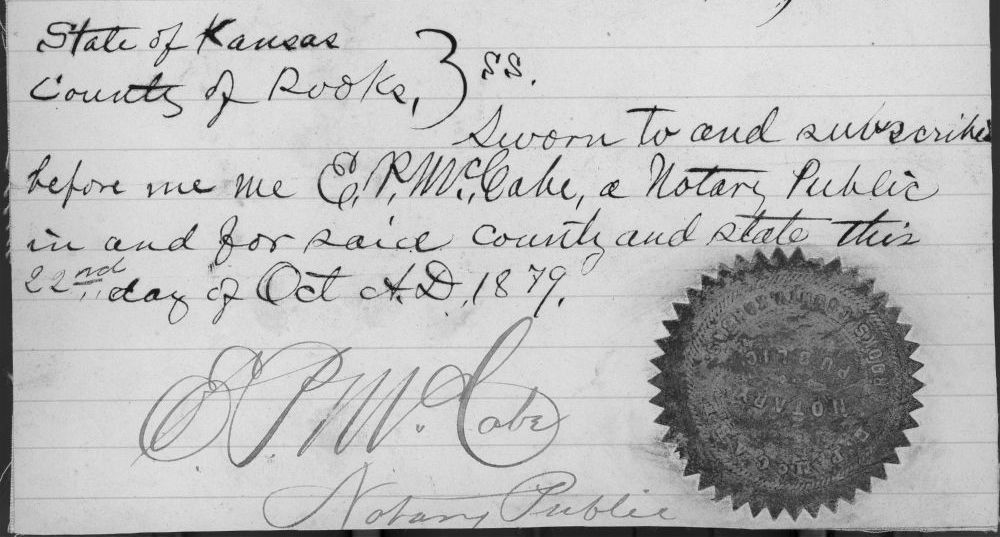 State of Kansas
County of Rooks, } SS.
Sworn to and subscribed
before me me E. P. McCabe, a Notary Public
in and for said county and state this
22nd day of Oct A.D. 1879.
E. P. McCabe
Notary Public
ROOKS COUNTY
NOTARY
PUBLIC